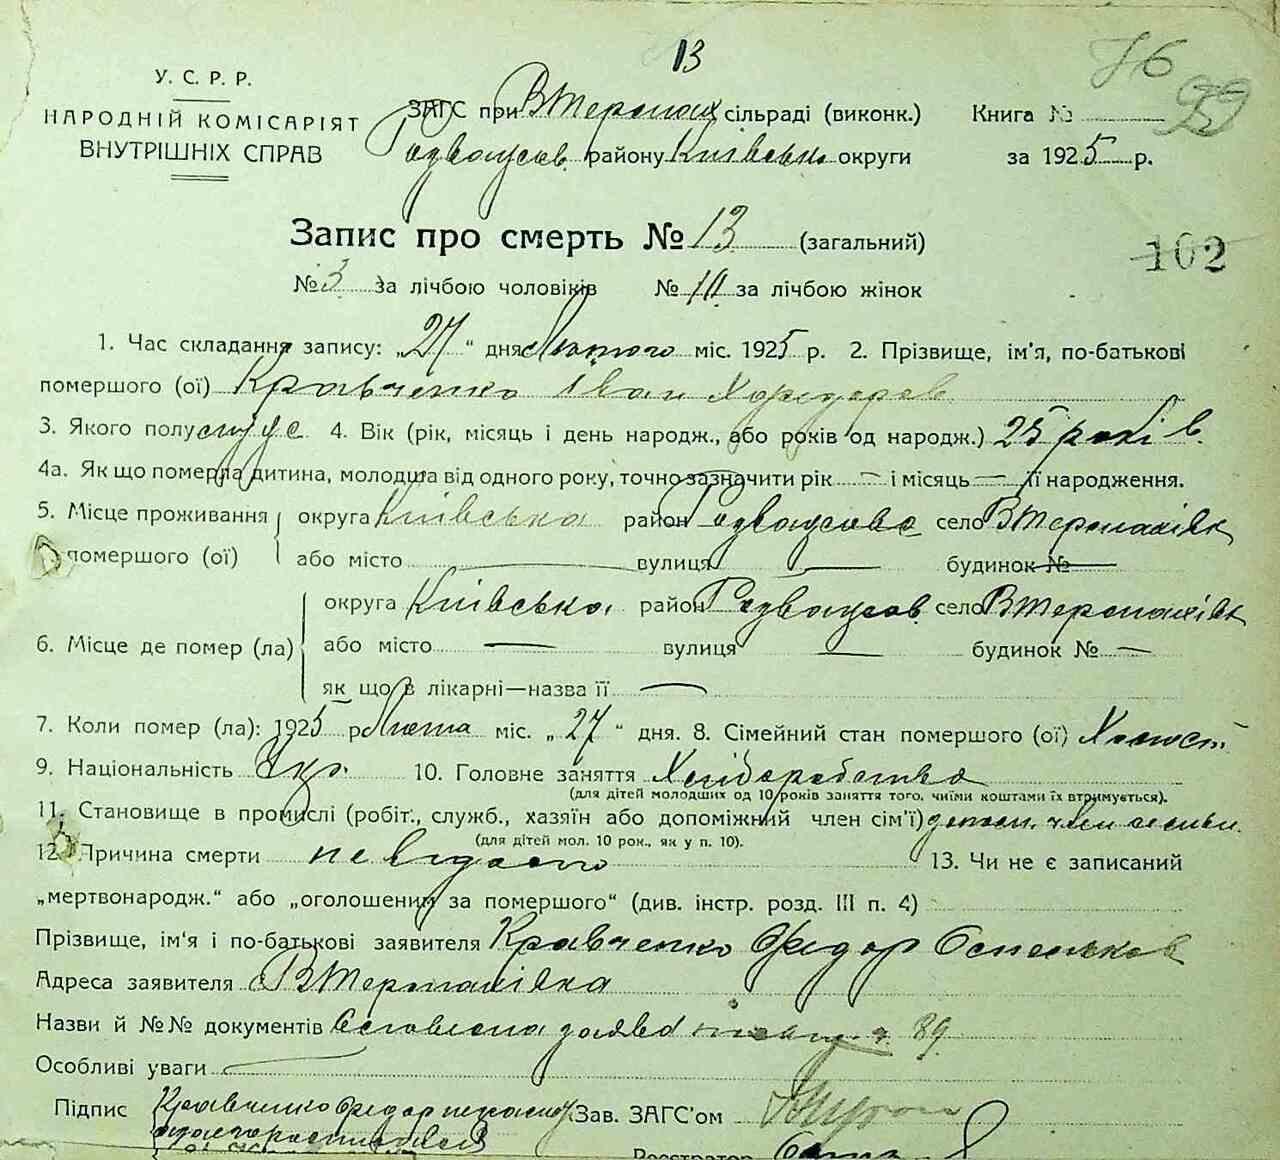 13
76
99
У. С. Р. Р.
НАРОДНІЙ КОМІСАРІЯТ
ВНУТРІШНІХ СПРАВ
ЗАГС при сільраді (виконк.) Книга №
району Київсько округи за 1925 р.
Запис про смерть № 13 (загальний)
102
№ 3 за лічбою чоловіків № 10 за лічбою жінок
1. Час складання запису: „27“ дня Лютого міс. 1925 р. 2. Прізвище, ім'я, по-батькові
помершого (ої) Кравченко Іван
3. Якого полу 4. Вік (рік, місяць і день народж., або років од народж.) 25 років
4а. Як що померла дитина, молодша від одного року, точно зазначити рік — і місяць — її народження.
5. Місце проживання округа Київська район село
помершого (ої) або місто — вулиця — будинок № —
округа Київська район село
6. Місце де помер (ла) або місто — вулиця — будинок № —
як що в лікарні—назва її —
7. Коли помер (ла): 1925 р. Люта міс. „27“ дня. 8. Сімейний стан помершого (ої) Холост.
9. Національність Укр. 10. Головне заняття Хліборобство
(для дітей молодших од 10 років заняття того, чиїми коштами їх втримується).
11. Становище в промислі (робіт., служб., хазяїн або допоміжний член сім'ї) член
(для дітей мол. 10 рок., як у п. 10).
12. Причина смерти невідомо 13. Чи не є записаний
„мертвонародж.“ або „оголошеним за помершого“ (див. інстр. розд. III п. 4)
Прізвище, ім'я і по-батькові заявителя Кравченко Федор
Адреса заявителя
Назви й №№ документів 89
Особливі уваги —
Підпис Кравченко Федор Зав. ЗАГС'ом
Реєстратор